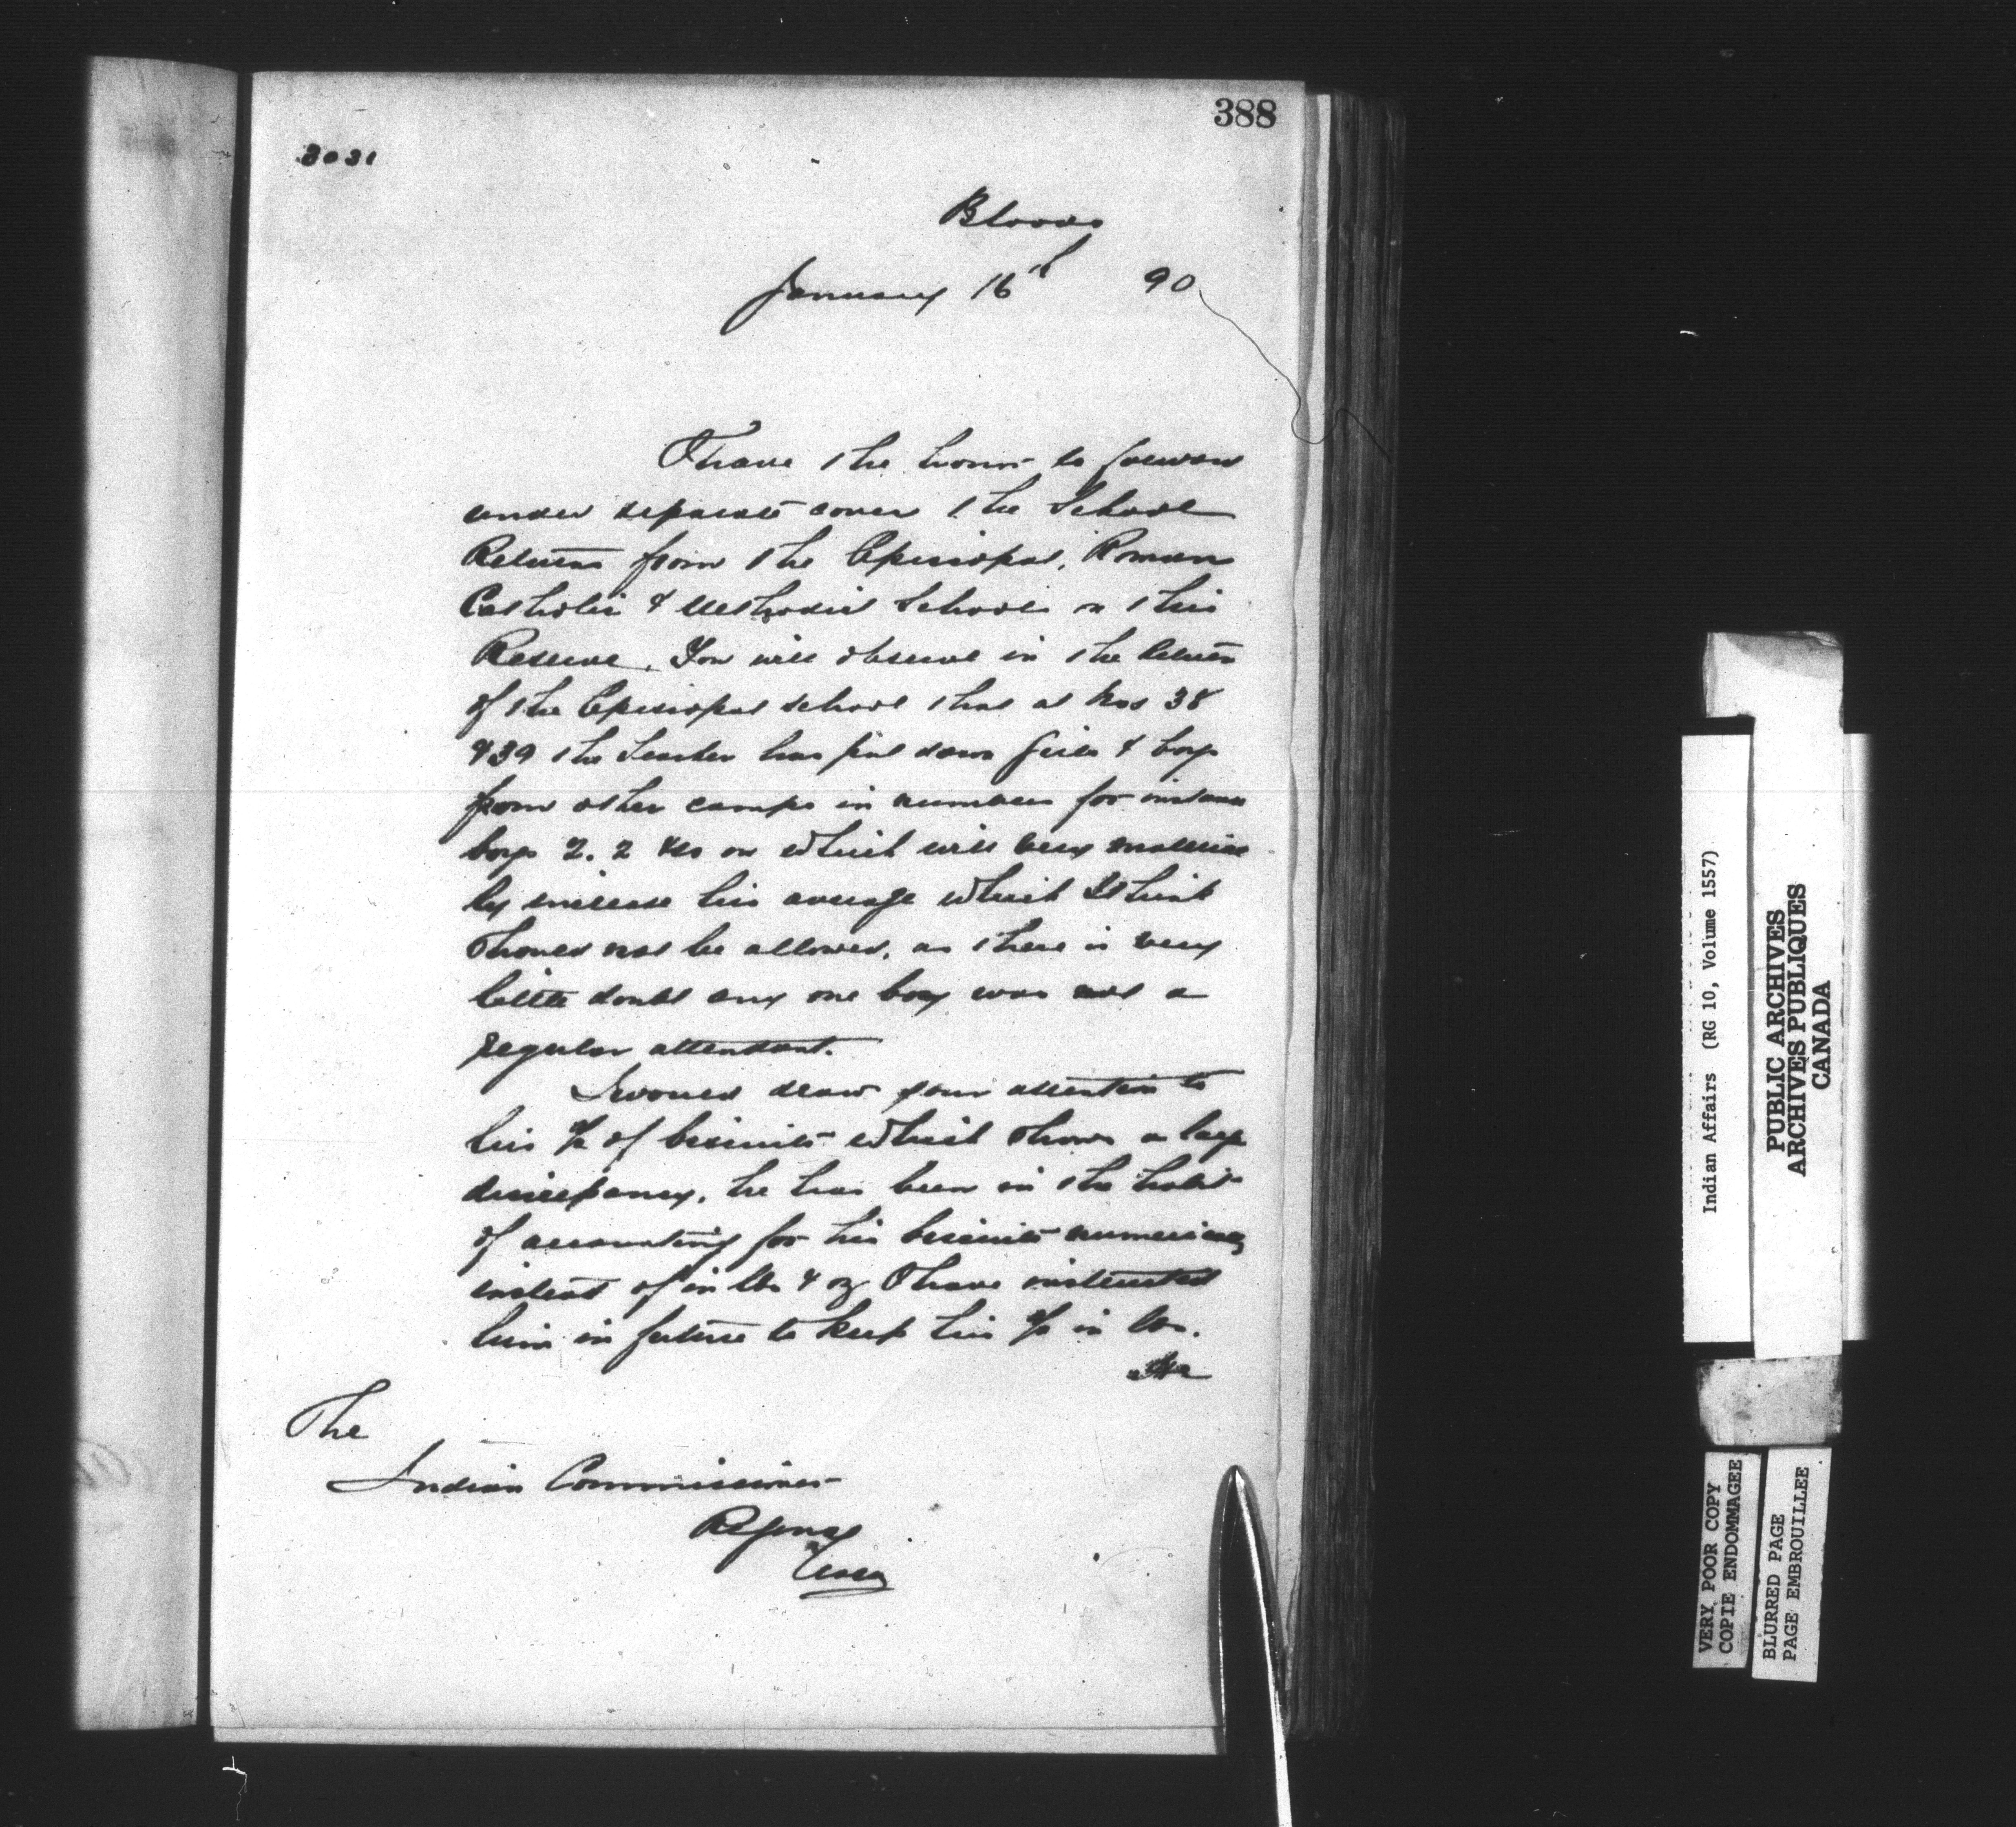 388
3031
Bloods
January 16th 90
I have the honor to forward
under separate cover the School
Returns from the Episcopal, Roman
Catholic & Methodist Schools on this
Reserve. You will observe in the Return
of the Episcopal school that at Nos 38
& 39 the Teacher has put down girls & boys
from other camps in numbers for instance
boys 2. 2 on which will very material
ly increase his average which I think
should not be allowed, as there is very
little doubt any one boy was not a
regular attendant.
I would draw your attention to
his a/c of biscuits which shows a large
discrepancy, he has been in the habit
of accounting for his biscuits numerically
instead of in lbs & oz I have instructed
him in future to keep his a/c in lbs.
The
The
Indian Commissioner
Regina
Assa
Indian Affairs (RG 10, Volume 1557)
PUBLIC ARCHIVES
ARCHIVES PUBLIQUES
CANADA
VERY POOR COPY
COPIE ENDOMMAGEE
BLURRED PAGE
PAGE EMBROUILLEE